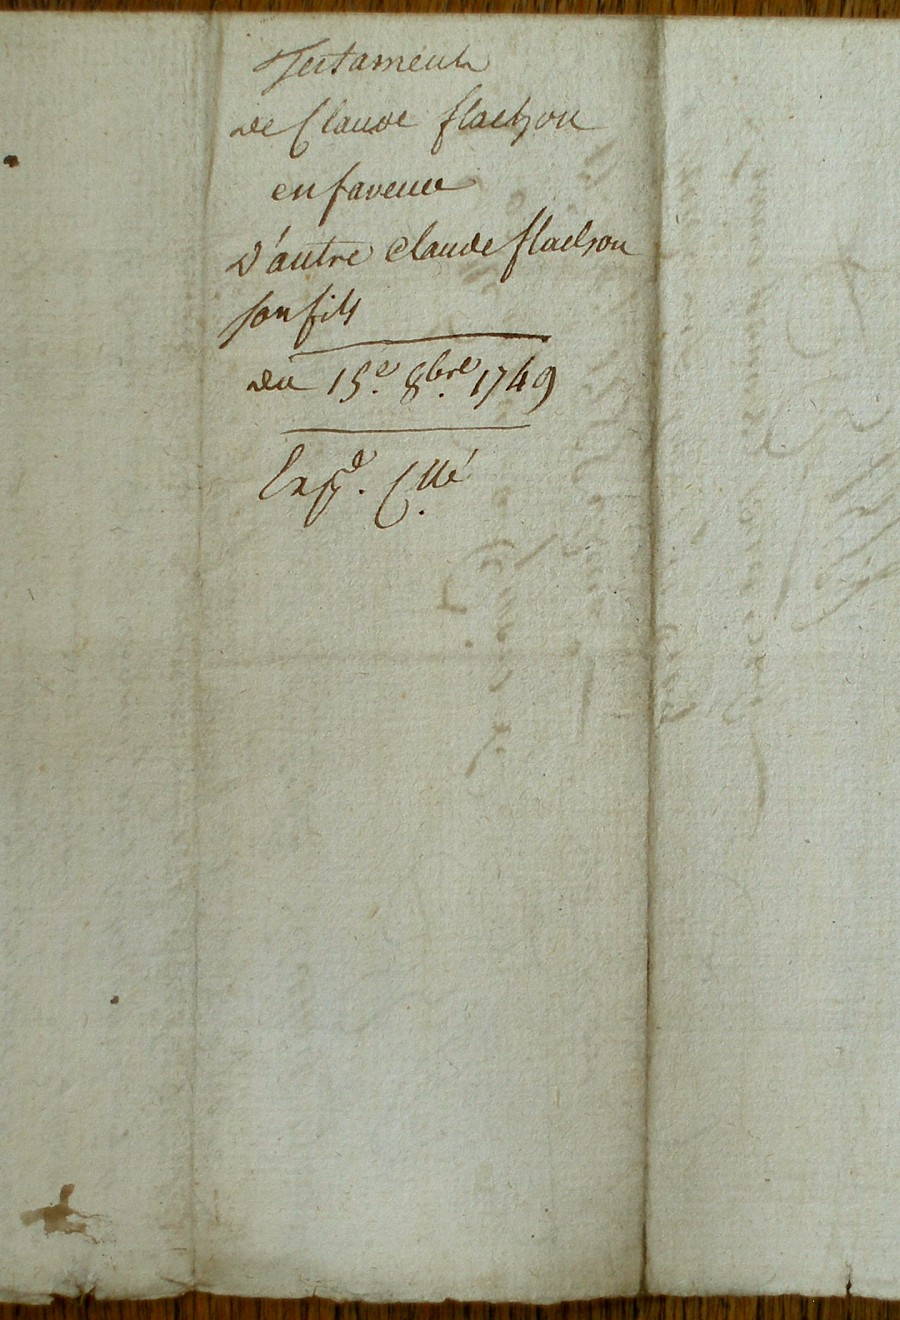 Testament
de Claude flachon
en faveur
d'autre Claude flachon
son fils
du 15e. 8bre. 1749
Expd. Cllé